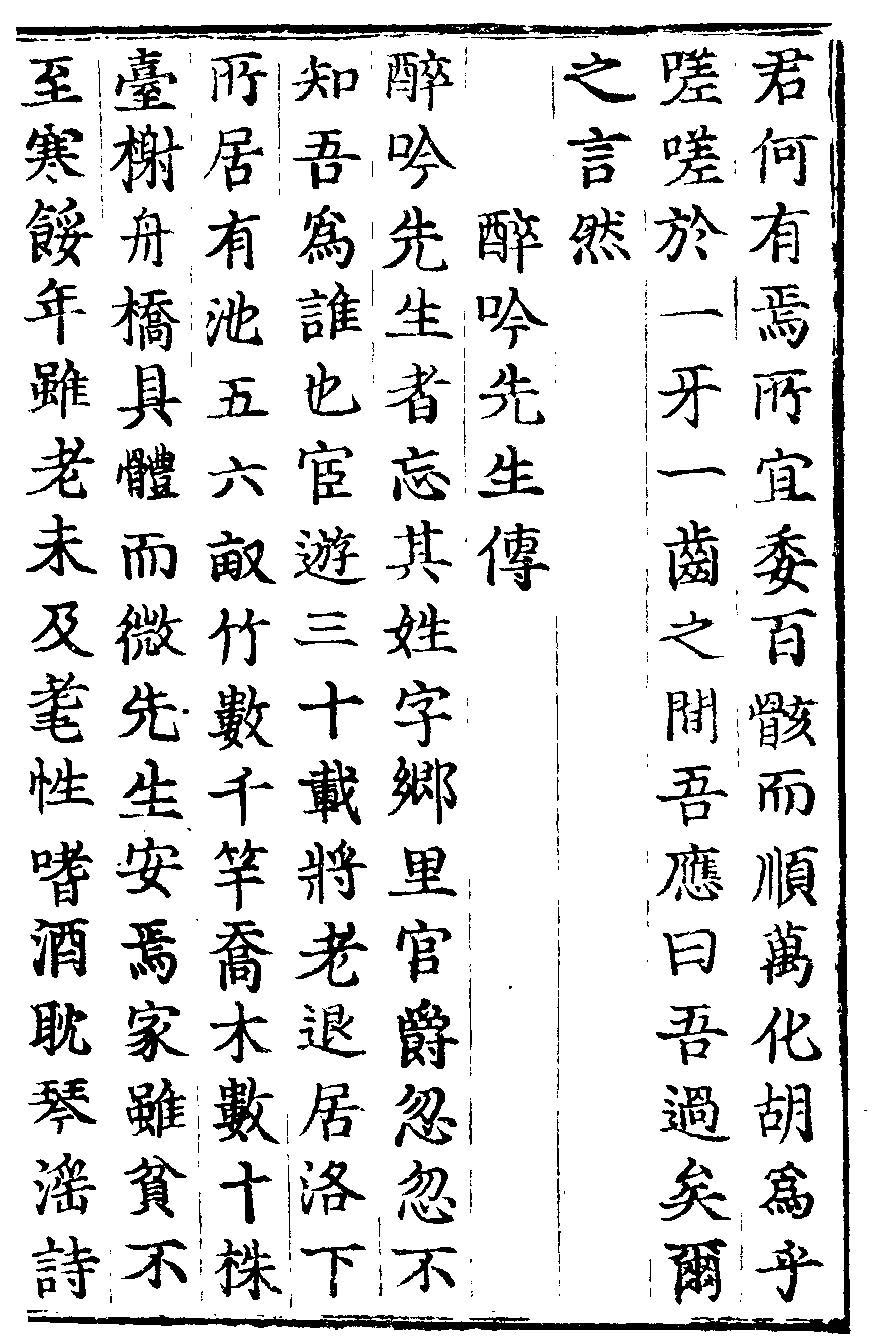 君何有焉所宜委百骸而順萬化胡爲乎
嗟嗟於一牙一齒之間吾應曰吾過矣爾
之言然
醉吟先生傳
醉吟先生者忘其姓字鄉里官爵忽忽不
知吾爲誰也宦遊三十載將老退居洛下
所居有池五六畝竹數千竿喬木數十株
臺榭舟橋具體而微先生安焉家雖貧不
至寒餒年雖老未及耄性嗜酒耽琴淫詩